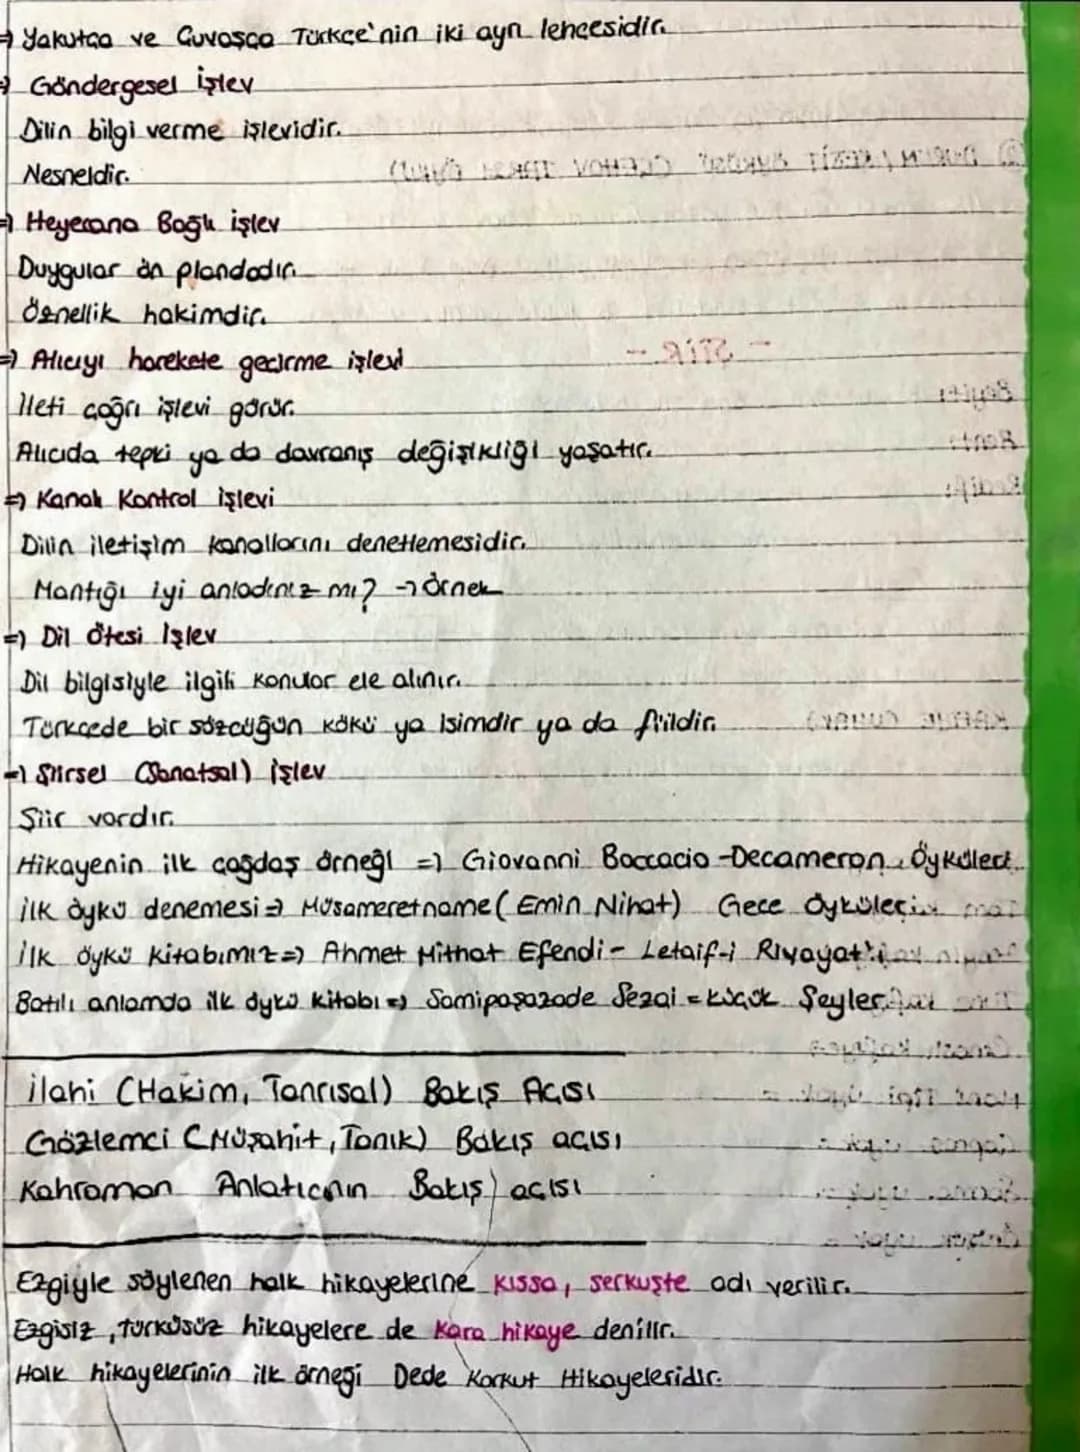 ⇒ Yakutça ve Çuvaşça Türkçe'nin iki ayrı lehçesidir.
⇒ Göndergesel işlev
Dilin bilgi verme işlevidir.
Nesneldir.
⇒ Heyecana Bağlı işlev
Duygular ön plandadır.
Öznellik hakimdir.
⇒ Alıcıyı harekete geçirme işlevi
İleti çağrı işlevi görür.
Alıcıda tepki ya da davranış değişikliği yaşatır.
⇒ Kanalı Kontrol işlevi
Dilin iletişim kanallarını denetlemesidir.
Mantığı iyi anladınız mı? → örnek
⇒ Dil Ötesi İşlev
Dil bilgisiyle ilgili konular ele alınır.
Türkçede bir sözcüğün kökü ya isimdir ya da fiildir.
⇒ Şiirsel (Sanatsal) işlev
Şiir vardır.
Hikayenin ilk çağdaş örneği ⇒ Giovanni Boccacio - Decameron Öyküleri
İlk öykü denemesi ⇒ Müsameretname (Emin Nihat) Gece Öyküleri
İlk öykü kitabımız ⇒ Ahmet Mithat Efendi - Letaif-i Rivayat
Batılı anlamda ilk öykü kitabı ⇒ Samipaşazade Sezai = Küçük Şeyler
İlahi (Hakim, Tanrısal) Bakış Açısı
Gözlemci (Müşahit, Tanık) Bakış açısı
Kahraman Anlatıcının Bakış açısı
Ezgiyle söylenen halk hikayelerine kıssa, serküşte adı verilir.
Ezgisiz, türküsüz hikayelere de kara hikaye denilir.
Halk hikayelerinin ilk örneği Dede Korkut Hikayeleridir.